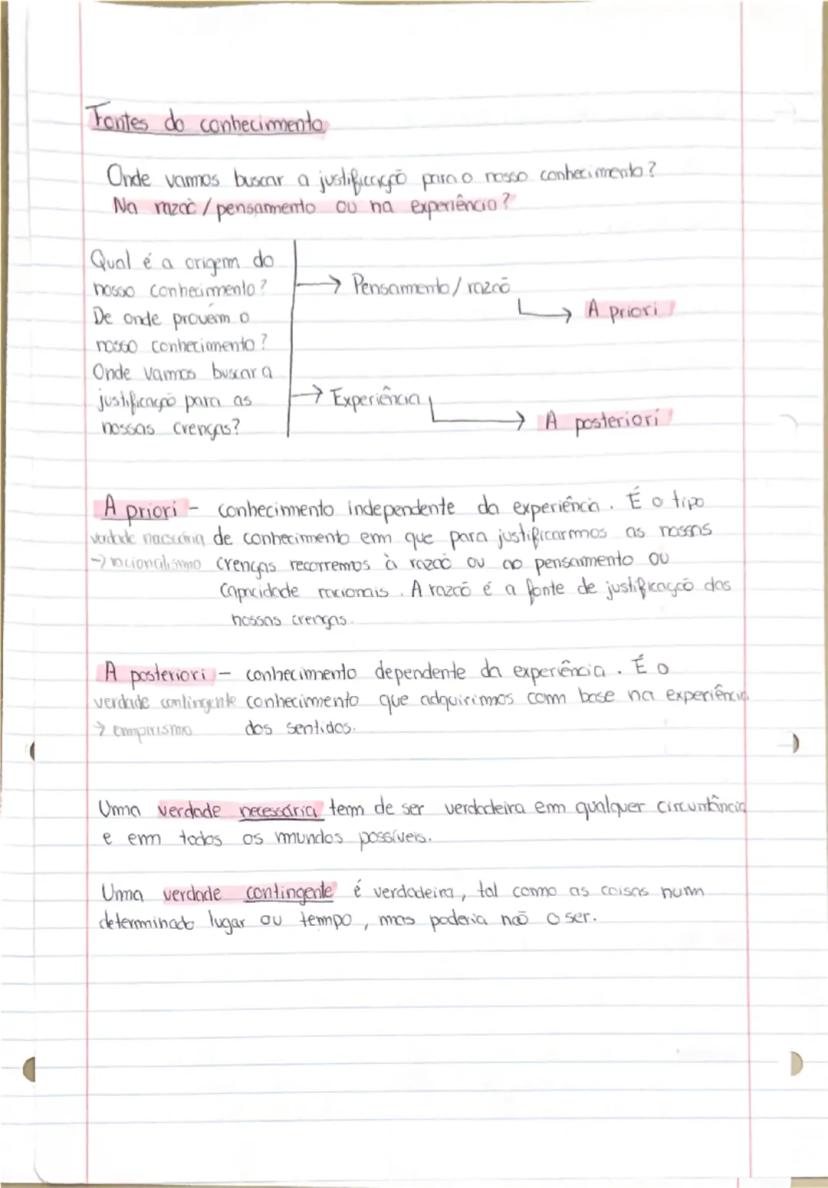 Fontes do conhecimento
Onde vamos buscar a justificação para o nosso conhecimento?
Na razão/pensamento ou na experiência?
Qual é a origem do
nosso conhecimento?
De onde provém o
nosso conhecimento?
Onde vamos buscar a
justificação para as
nossas crenças?
→ Pensamento/razão
→ A priori
→ Experiência
→ A posteriori
A priori - conhecimento independente da experiência. É o tipo
verdade necessária de conhecimento em que para justificarmos as nossas
→ racionalismo crenças recorremos à razão ou ao pensamento ou
capacidade racionais. A razão é a fonte de justificação das
nossas crenças.
A posteriori - conhecimento dependente da experiência. É o
verdade contingente conhecimento que adquirimos com base na experiência
→ empirismo dos sentidos.
Uma verdade necessária tem de ser verdadeira em qualquer circuntância
e em todos os mundos possíveis.
Uma verdade contingente é verdadeira, tal como as coisas num
determinado lugar ou tempo, mas poderia não o ser.